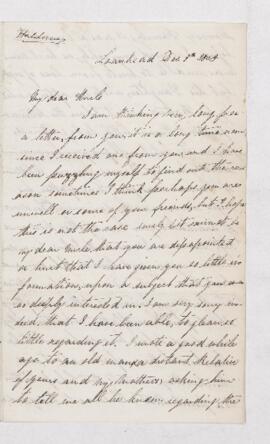 Loanhead Dec 1st
My dear Uncle
I am thinking very long for
a letter from you it is a long time now
since I received one from you and I have
been puzzling myself to find out the rea
son sometimes I think perhaps you are
unwell or some of your friends, but I hope
this is not the case surely it cannot be
my dear Uncle that you are disappointed
or hurt that I have given you so little in
formation upon a subject that you are
so deeply interested in. I am very sorry in
deed, that I have been able to glean so
little regarding it. I wrote a good while
ago to an old man a distant Relative
of yours and my Mothers asking him
to tell me all he knew regarding the